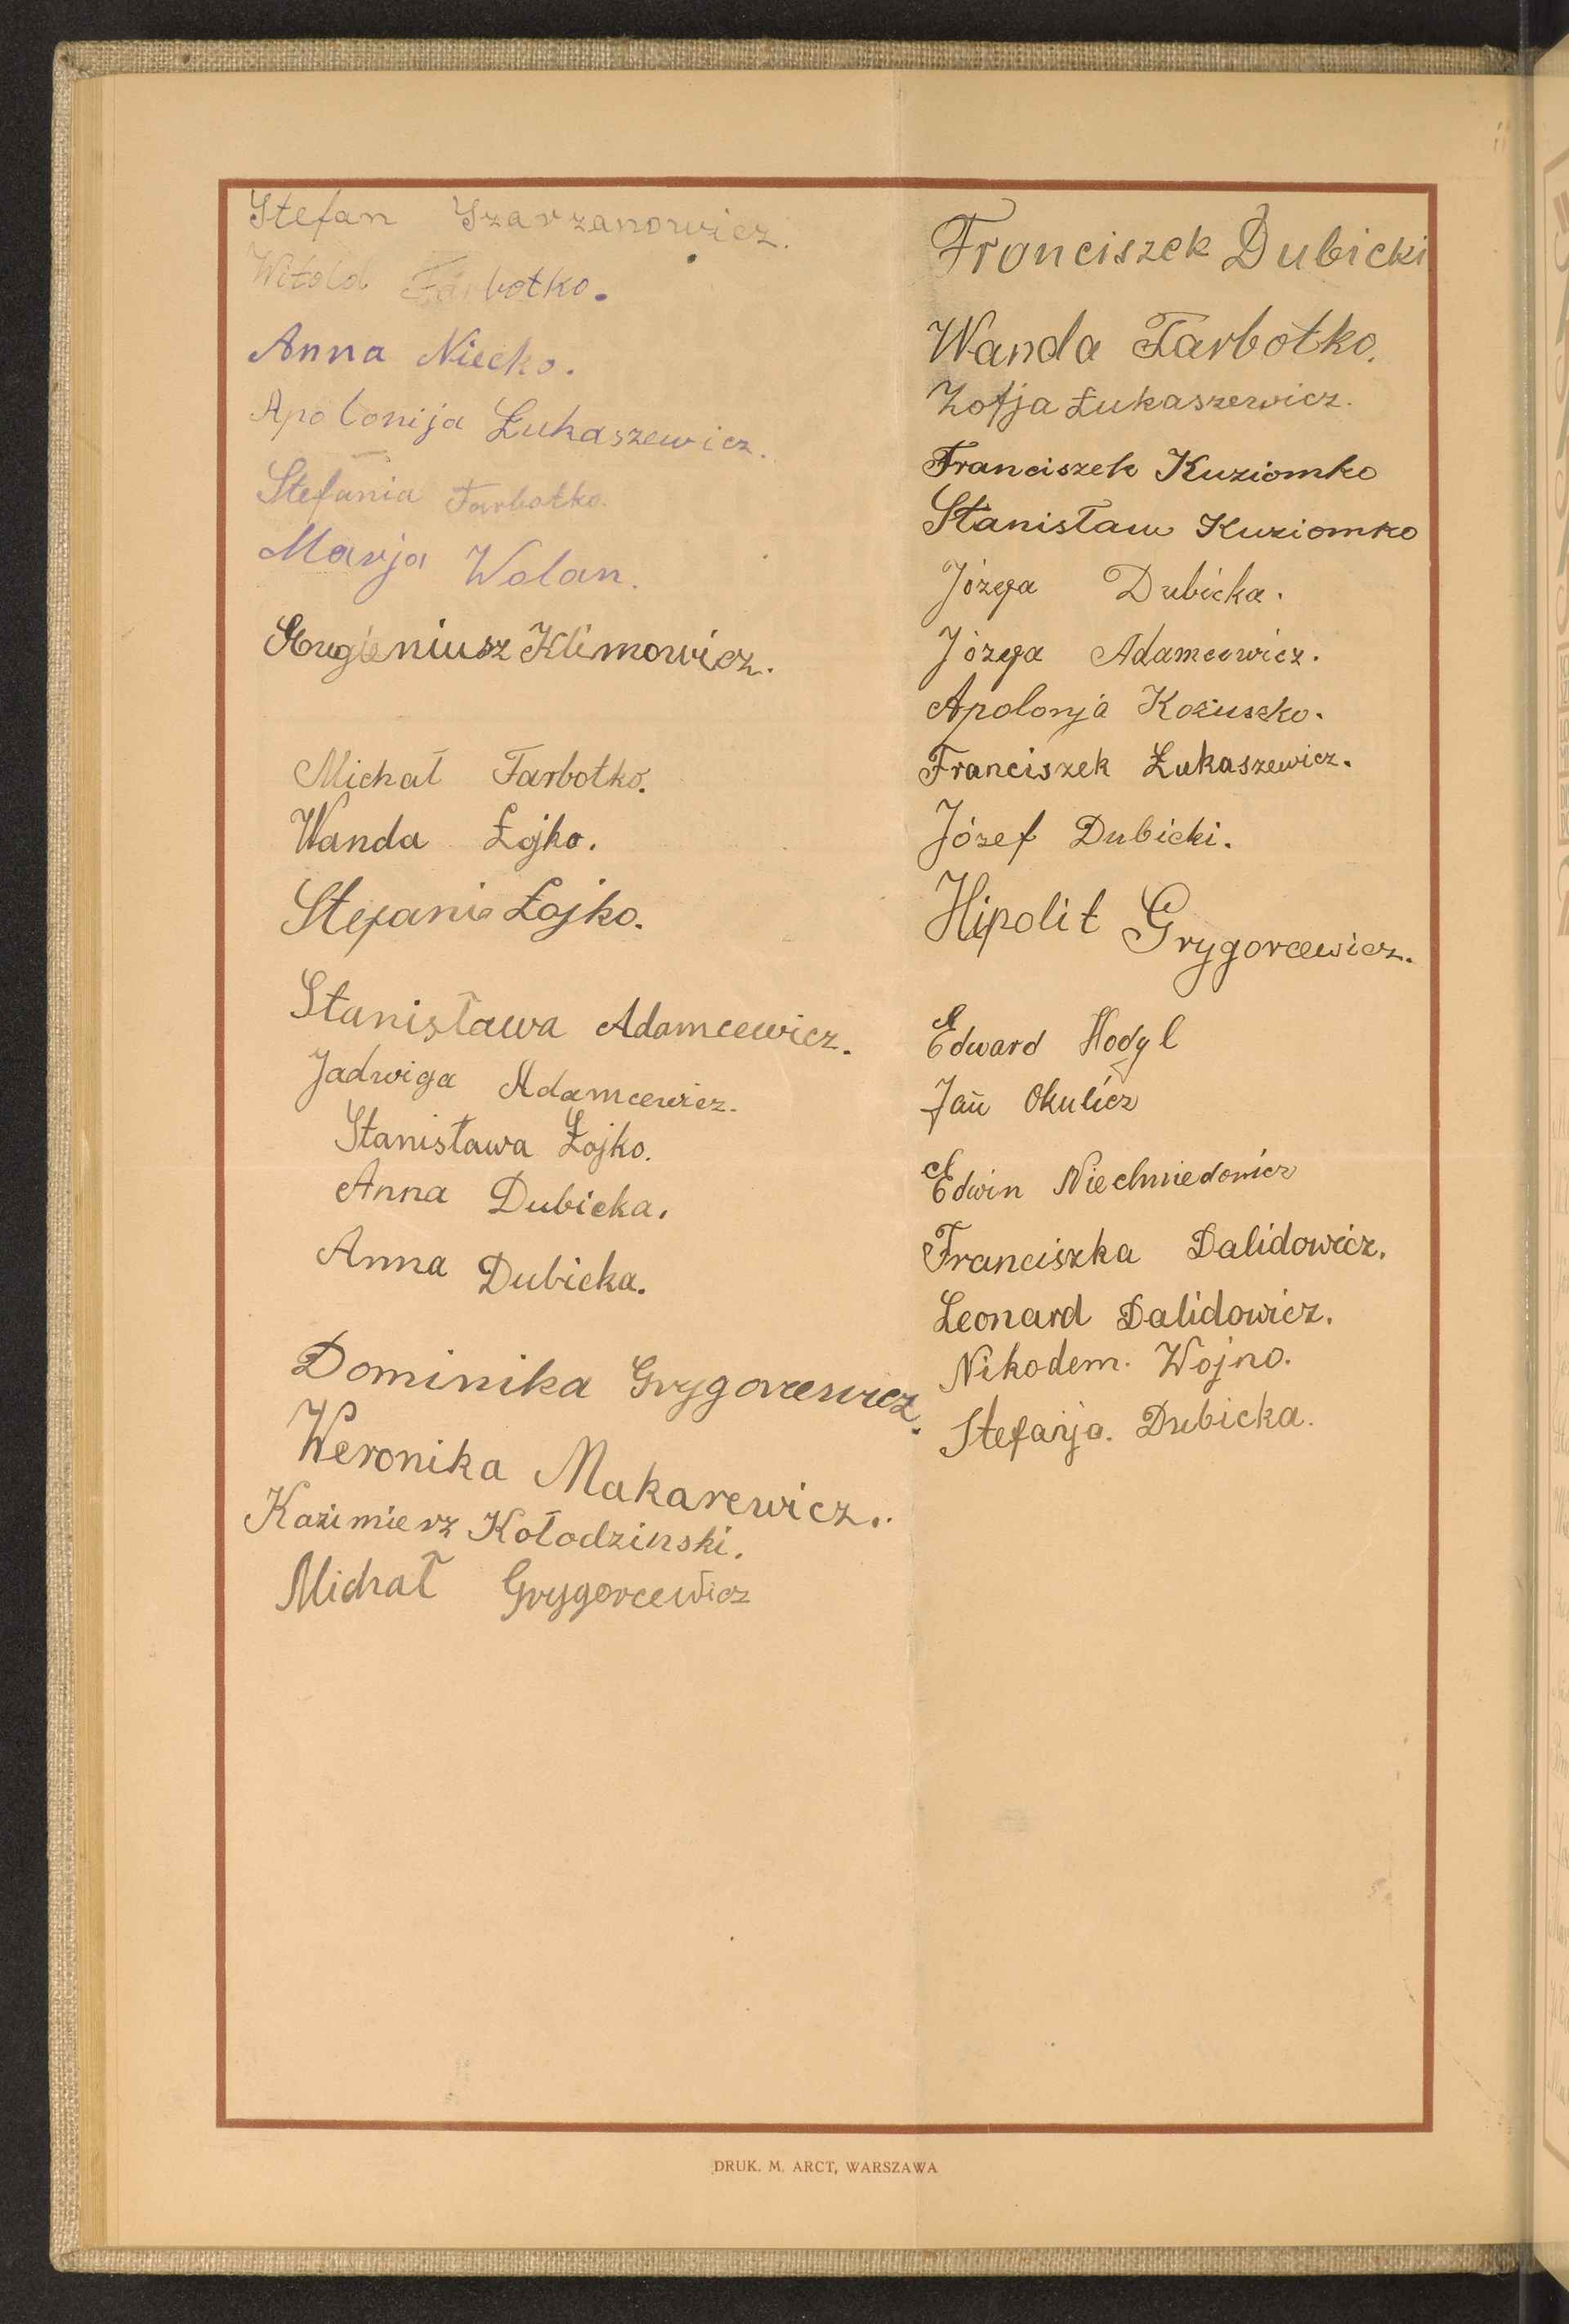 Stefan Szarzanowicz.
Witold Tarbotko.
Anna Niecko.
Apolonija Łukaszewicz.
Stefania Tarbotko.
Marja Wolan.
Eugieniusz Klimowicz.
Michał Tarbotko.
Wanda Łojko.
Stefania Łojko.
Stanisława Adamcewicz.
Jadwiga Adamcewicz.
Stanisława Łojko.
Anna Dubicka.
Anna Dubicka.
Dominika Grygorcewicz.
Weronika Makarewicz.
Kazimierz Kołodzinski.
Michał Grygorcewicz
Franciszek Dubicki
Wanda Tarbotko.
Zofja Łukaszewicz.
Franciszek Kuziomko
Stanisław Kuziomko
Józefa Dubicka.
Józefa Adamcewicz.
Apolonja Kożuszko.
Franciszek Łukaszewicz.
Józef Dubicki.
Hipolit Grygorcewicz.
Edward Hodyl
Jan Okulicz
Edwin Niechwiedowicz
Franciszka Dalidowicz.
Leonard Dalidowicz.
Nikodem. Wojno.
Stefanja. Dubicka.
DRUK. M. ARCT, WARSZAWA